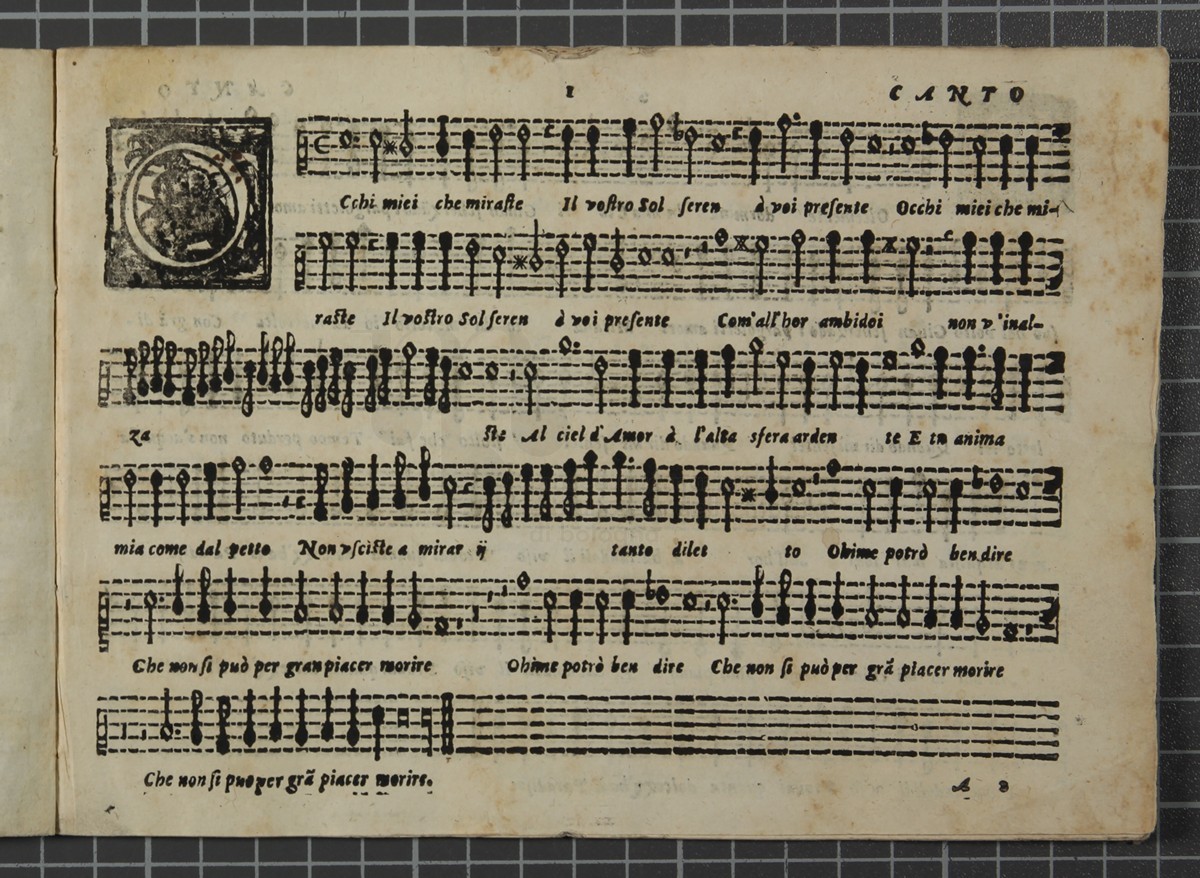 1 CANTO
O
Cchi miei che miraſte Il voſtro Sol ſeren à voi preſente Occhi miei che mi-
raſte Il voſtro Sol ſeren à voi preſente Com'all'hor ambidoi non v'inal-
za ſte Al ciel d'Amor à l'alta sfera arden te E tu anima
mia come dal petto Non vſciſte a mirar ij tanto dilet to Ohime potrò ben dire
Che non ſi può per gran piacer morire Ohime potrò ben dire Che non ſi può per grã piacer morire
Che non ſi può per grã piacer morire.
A